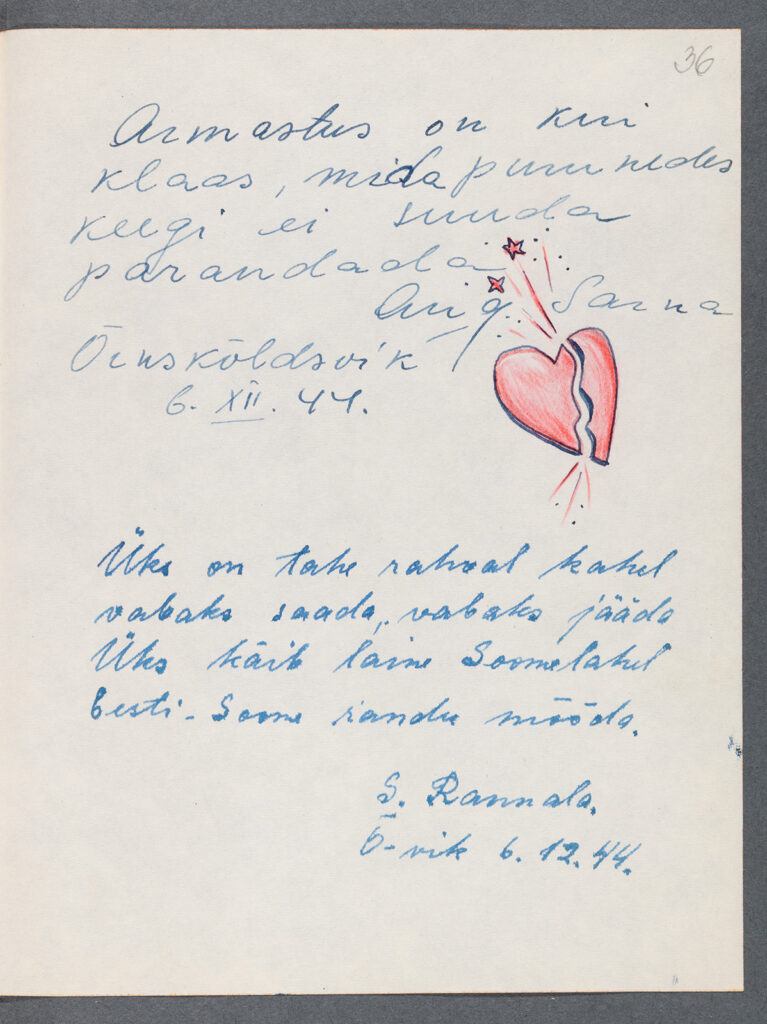 36
Armastus on kui
klaas, mida purunedes
keegi ei suuda
parandada
Aug. Sarna
Örnsköldsvik
6. XII. 44.
Üks on tahe rahval kahel
vabaks saada, vabaks jääda
Üks käib laine Soomelahel
Eesti-Soome randu mööda.
S. Rannala.
Ö-vik 6. 12. 44.